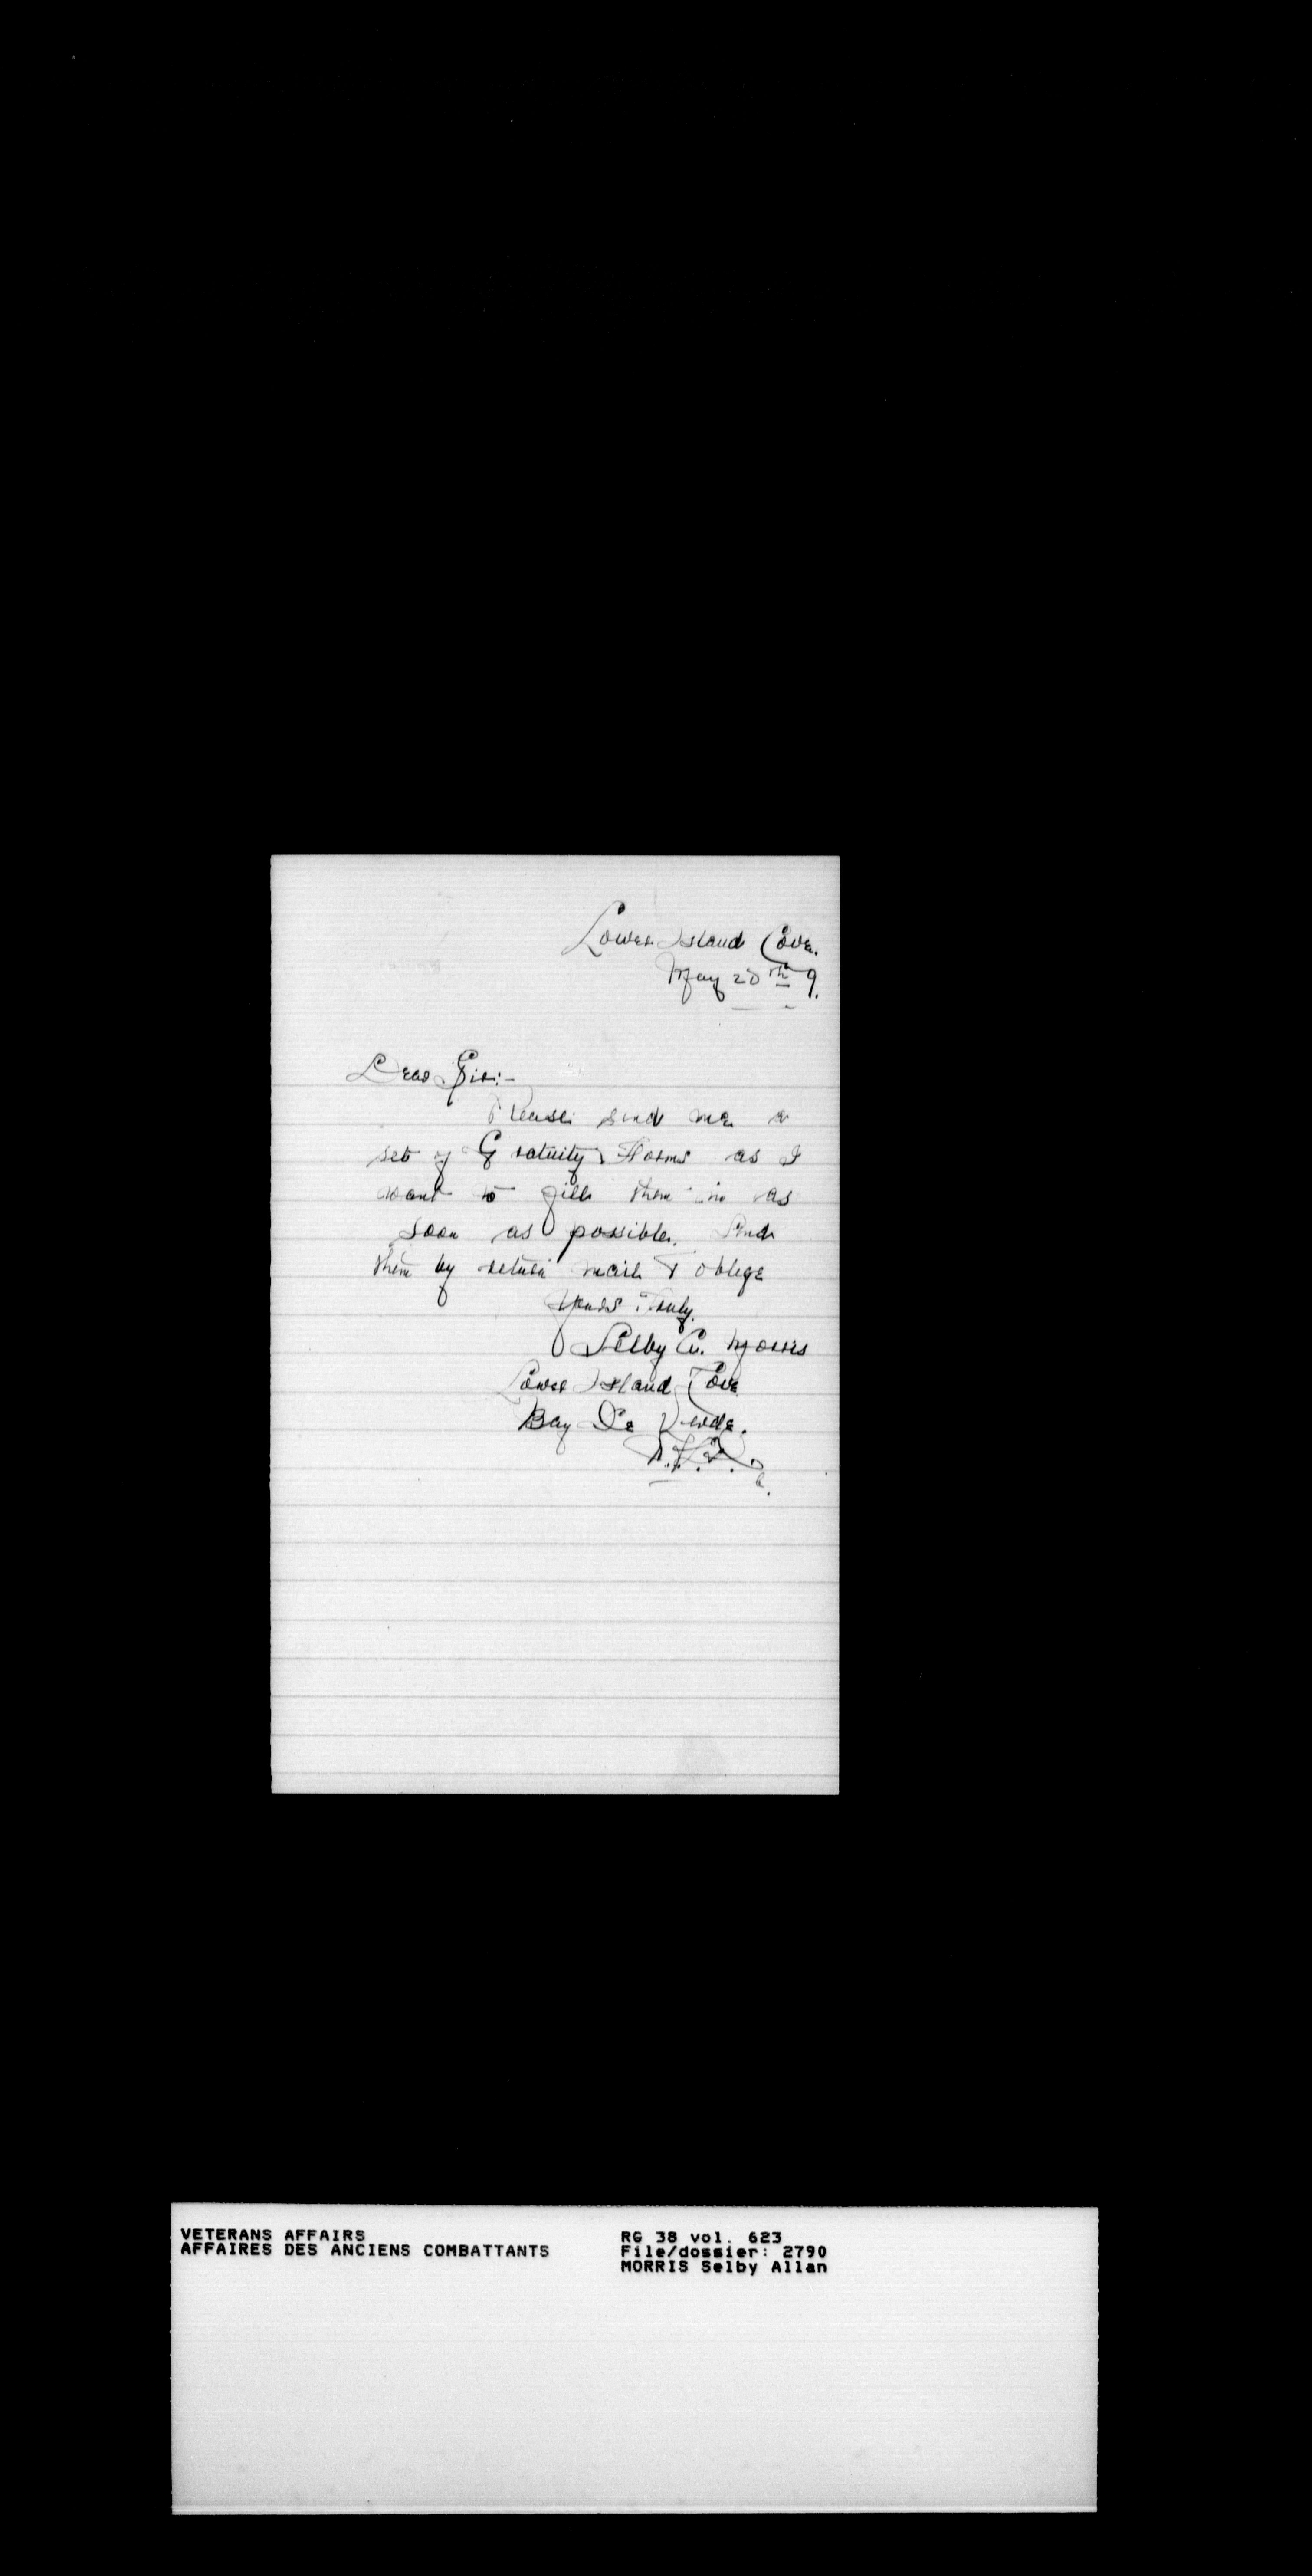 Lower Island Cove.
May 20th 9.
Dear Sir:-
Please send me a
set of Gratuity Forms as I
want to fill them in as
soon as possible. Send
them by return mail & oblige
Yours Truly.
Selby A. Morris
Lower Island Cove
Bay De Verde.
VETERANS AFFAIRS
AFFAIRES DES ANCIENS COMBATTANTS
RG 38 vol. 623
File/dossier: 2790
MORRIS Selby Allan